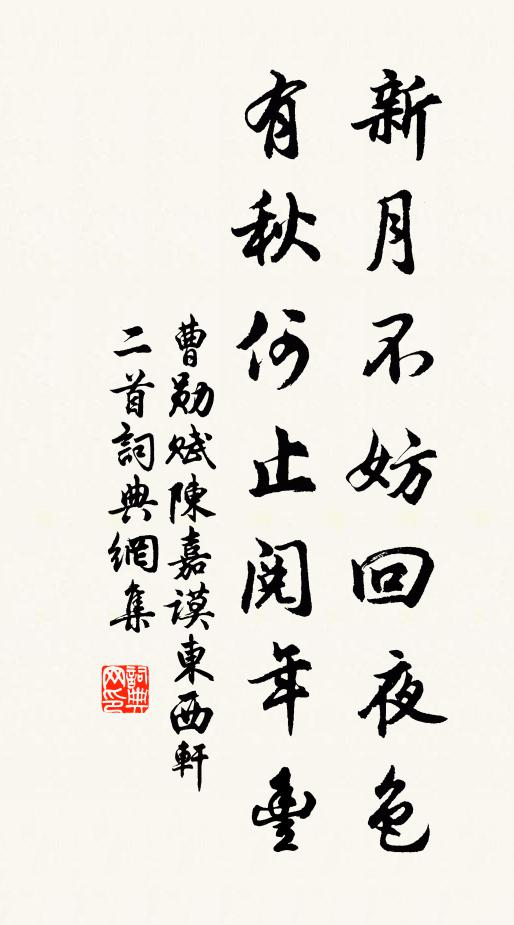 新月不妨回夜色
有秋何止閱年豐
曹勛賦陳嘉謨東西軒
二首詞典網集
詞典
网印